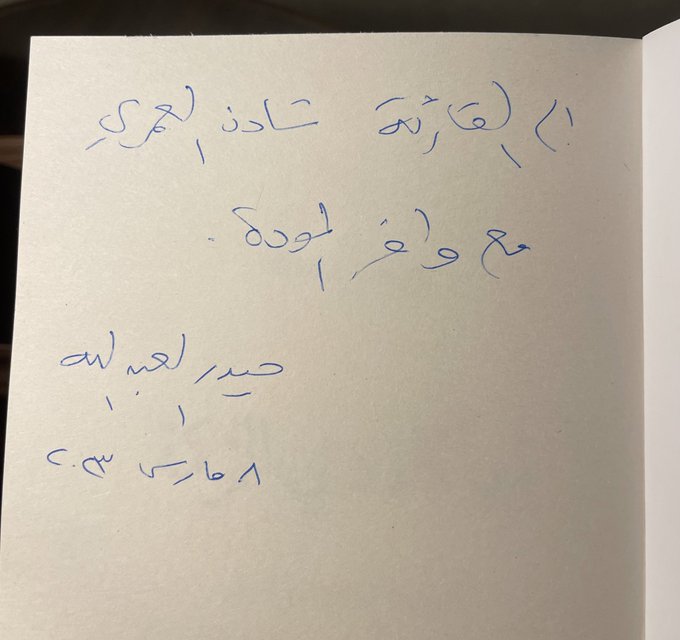 الى القارئة شادن العمري
مع وافر المودة.
حيدر العبدالله
٨ مارس ٢٠٢٣